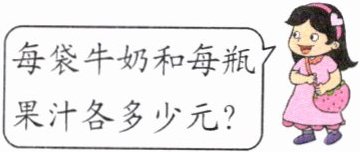 每袋牛奶和每瓶
果汁各多少元?